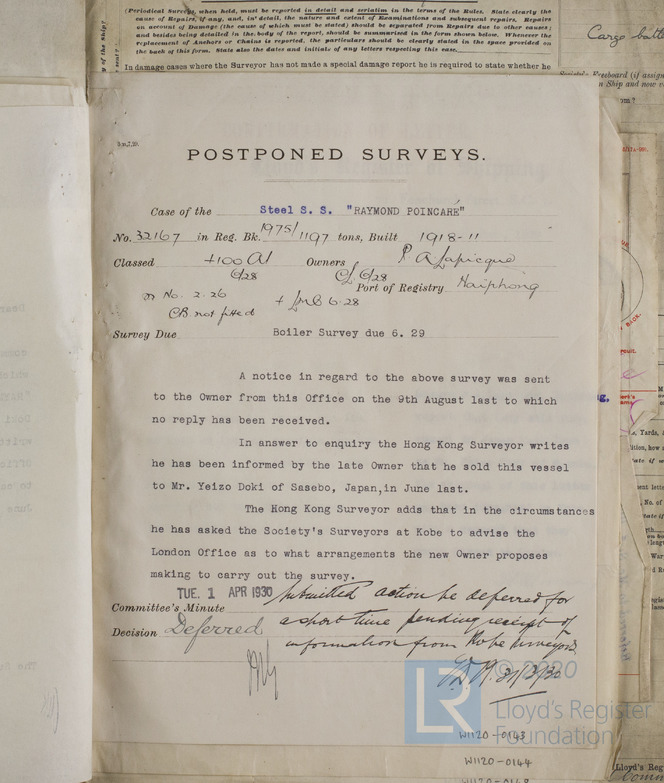 (Periodical Surveys, when held, must be reported in detail and seriatim in terms of the Rules. State clearly the
cause of Repairs, if any, and, in detail, the nature and extent of Examinations and subsequent repairs. Repairs
on account of Damage (the cause of which must be stated) should be separated from Repairs due to other causes;
and besides being detailed in the body of the report, should be summarised in the form shown below. Whenever the
replacement of Anchors or Chains is reported, the particulars should be clearly stated in the space provided on
the back of this form. State also the dates and initials of any letters respecting this case.
In damage cases where the Surveyor has not made a special damage report he is required to state whether he
POSTPONED SURVEYS.
Case of the Steel S. S. "RAYMOND POINCARÉ"
No. 32167 in Reg. Bk. 1975/1197 tons, Built 1918-11
Classed +100 A1 Owners P. A. Lapicque
6/28 6/28 Port of Registry Haiphong
No. 2.26 + LMC 6.28
CB not fitted
Survey Due Boiler Survey due 6. 29
A notice in regard to the above survey was sent
to the Owner from this Office on the 9th August last to which
no reply has been received.
In answer to enquiry the Hong Kong Surveyor writes
he has been informed by the late Owner that he sold this vessel
to Mr. Yeizo Doki of Sasebo, Japan,in June last.
The Hong Kong Surveyor adds that in the circumstances
he has asked the Society's Surveyors at Kobe to advise the
London Office as to what arrangements the new Owner proposes
making to carry out the survey.
TUE. 1 APR 1930 Submitted action be deferred for
Committee's Minute a short time pending receipt of
Decision Deferred information from Kobe surveyors
31/3/30
© 2020
LR Lloyd's Register
Foundation
W1120-0143
W1120-0144